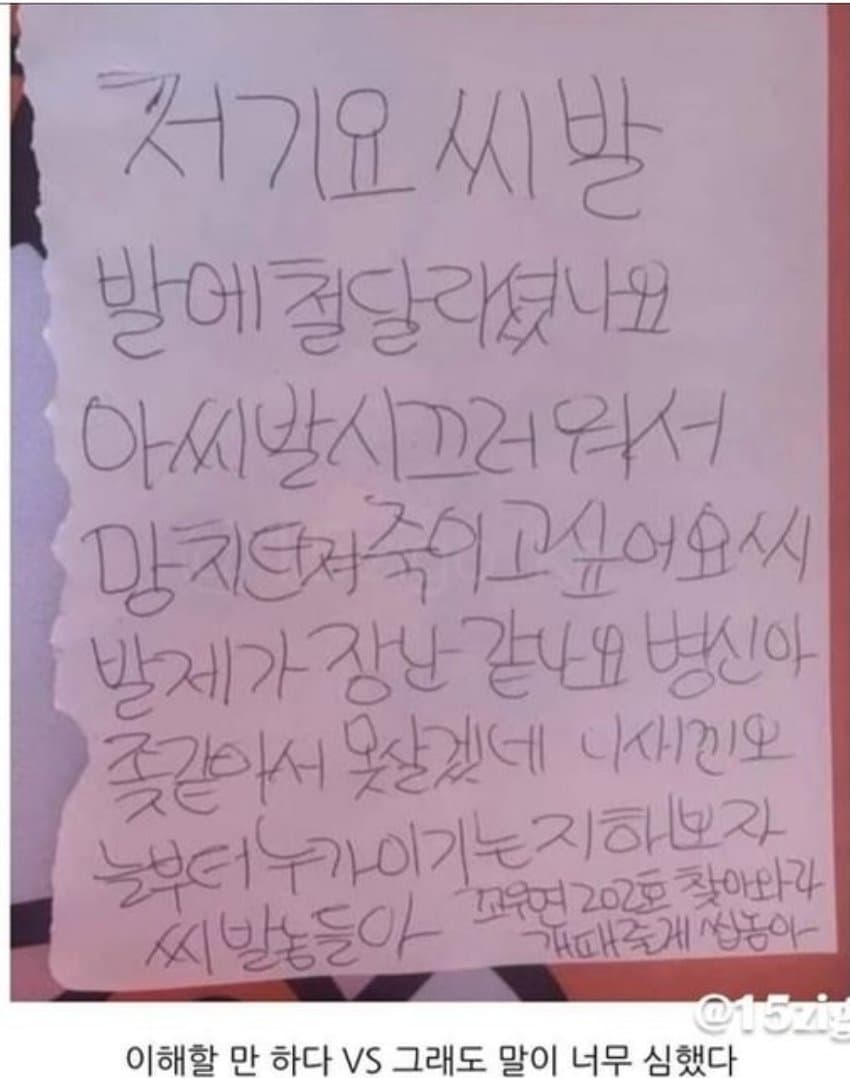 저기요 씨발
발에 철달라셨나요
아씨발시끄러워서
망치던져죽이고싶어요씨
발제가 장난 같나요 병신아
좆같아서 못살겠네 니새낀오
늘부터누가이기는지해보자
씨발놈들아 꼬우면 202호 찾아와라
개패줄게 씹놈아
@15zig
이해할 만 하다 VS 그래도 말이 너무 심했다